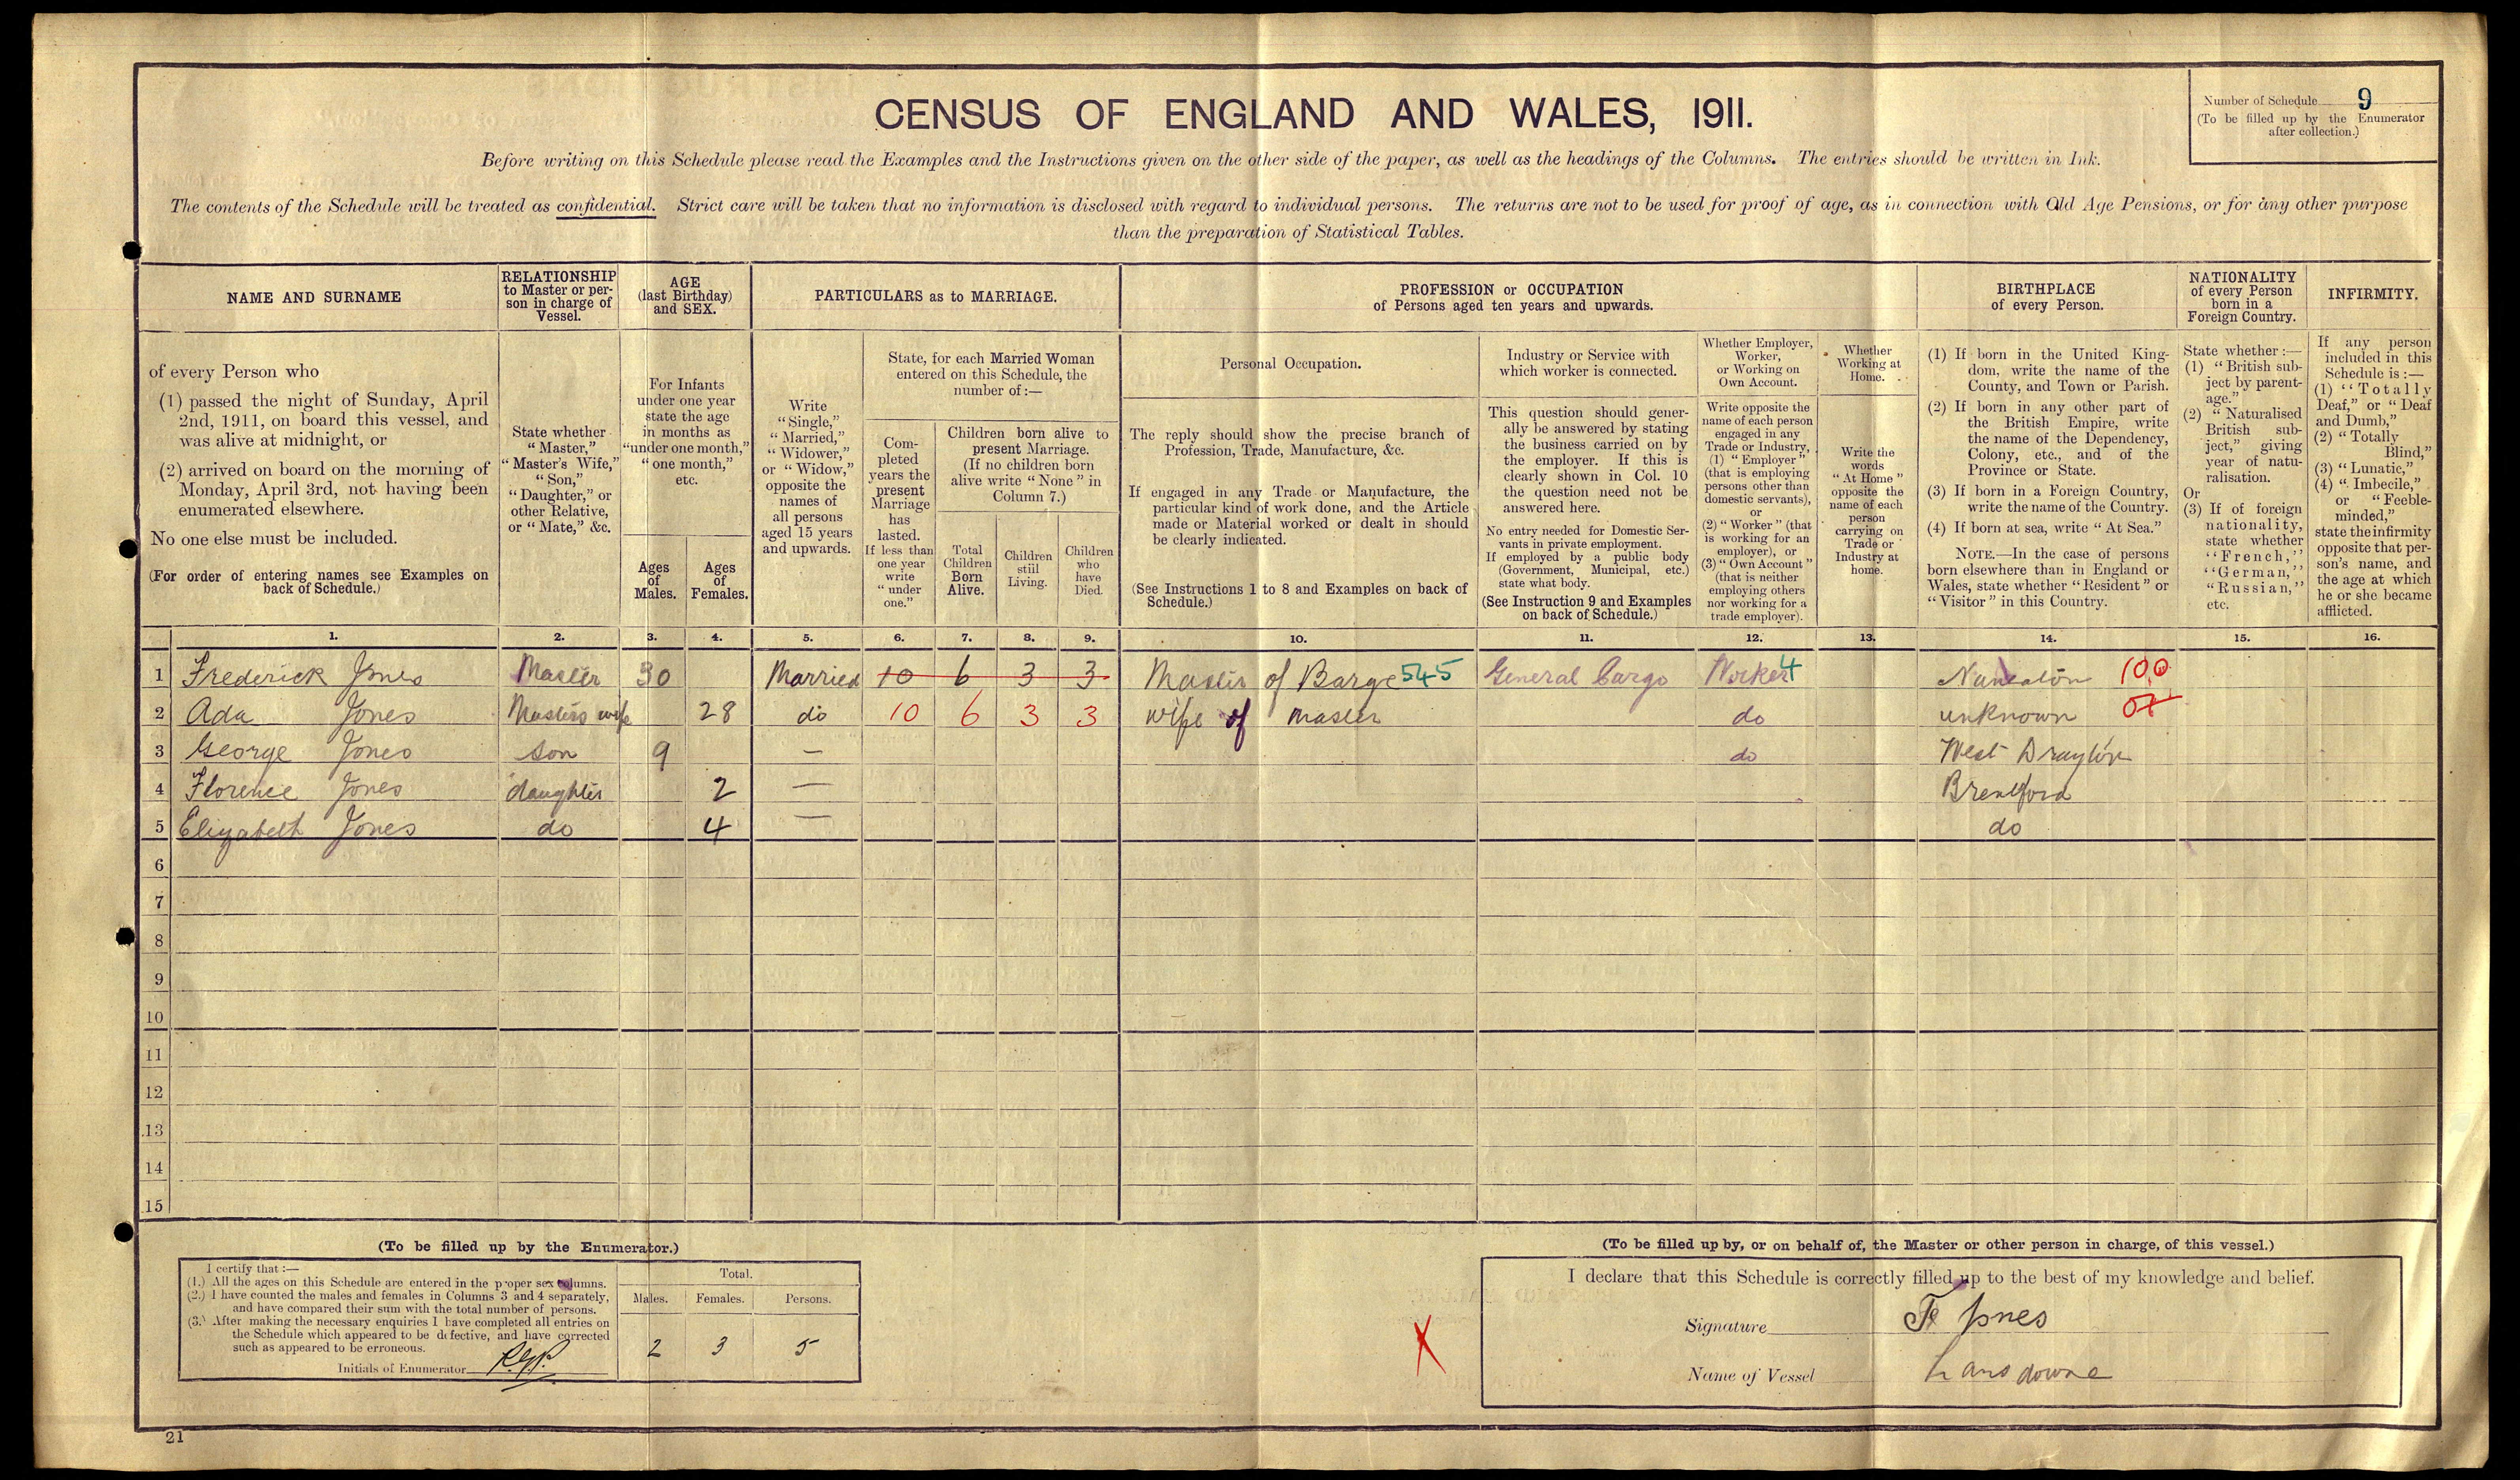 CENSUS OF ENGLAND AND WALES, 1911.
Number of Schedule 9
(To be filled up by the Enumerator
after collection.)
Before writing on this Schedule please read the Examples and the Instructions given on the other side of the paper, as well as the headings of the Columns. The entries should be written in Ink.
The contents of the Schedule will be treated as confidential. Strict care will be taken that no information is disclosed with regard to individual persons. The returns are not to be used for proof of age, as in connection with Old Age Pensions, or for any other purpose
than the preparation of Statistical Tables.
NAME AND SURNAME
of every Person who
(1) passed the night of Sunday, April
2nd, 1911, on board this vessel, and
was alive at midnight, or
(2) arrived on board on the morning of
Monday, April 3rd, not having been
enumerated elsewhere.
No one else must be included.
(For order of entering names see Examples on
back of Schedule.)
RELATIONSHIP
to Master or per-
son in charge of
Vessel.
State whether
"Master,"
"Master's Wife,"
"Son,"
"Daughter," or
other Relative,
or "Mate," &c.
AGE
(last Birthday)
and SEX.
For Infants
under one year
state the age
in months as
"under one month,"
"one month,"
etc.
Ages
of
Males.
Ages
of
Females.
PARTICULARS as to MARRIAGE.
Write
"Single,"
"Married,"
"Widower,"
or "Widow,"
opposite the
names of
all persons
aged 15 years
and upwards.
State, for each Married Woman
entered on this Schedule, the
number of:—
Com-
pleted
years the
present
Marriage
has
lasted.
If less than
one year
write
"under
one."
Children born alive to
present Marriage.
(If no children born
alive write "None" in
Column 7.)
Total
Children
Born
Alive.
Children
still
Living.
Children
who
have
Died.
PROFESSION or OCCUPATION
of Persons aged ten years and upwards.
Personal Occupation.
The reply should show the precise branch of
Profession, Trade, Manufacture, &c.
If engaged in any Trade or Manufacture, the
particular kind of work done, and the Article
made or Material worked or dealt in should
be clearly indicated.
(See Instructions 1 to 8 and Examples on back of
Schedule.)
Industry or Service with
which worker is connected.
This question should gener-
ally be answered by stating
the business carried on by
the employer. If this is
clearly shown in Col. 10
the question need not be
answered here.
No entry needed for Domestic Ser-
vants in private employment.
If employed by a public body
(Government, Municipal, etc.)
state what body.
(See Instruction 9 and Examples
on back of Schedule.)
Whether Employer,
Worker,
or Working on
Own Account.
Write opposite the
name of each person
engaged in any
Trade or Industry,
(1) "Employer"
(that is employing
persons other than
domestic servants),
or
(2) "Worker" (that
is working for an
employer), or
(3) "Own Account"
(that is neither
employing others
nor working for a
trade employer).
Whether
Working at
Home.
Write the
words
"At Home"
opposite the
name of each
person
carrying on
Trade or
Industry at
home.
BIRTHPLACE
of every Person.
(1) If born in the United King-
dom, write the name of the
County, and Town or Parish.
(2) If born in any other part of
the British Empire, write
the name of the Dependency,
Colony, etc., and of the
Province or State.
(3) If born in a Foreign Country,
write the name of the Country.
(4) If born at sea, write "At Sea."
NOTE.—In the case of persons
born elsewhere than in England or
Wales, state whether "Resident" or
"Visitor" in this Country.
NATIONALITY
of every Person
born in a
Foreign Country.
State whether:—
(1) "British sub-
ject by parent-
age."
(2) "Naturalised
British sub-
ject," giving
year of natu-
ralisation.
Or
(3) If of foreign
nationality,
state whether
"French,"
"German,"
"Russian,"
etc.
INFIRMITY.
If any person
included in this
Schedule is:—
(1) "Totally
Deaf," or "Deaf
and Dumb,"
(2) "Totally
Blind,"
(3) "Lunatic,"
(4) "Imbecile,"
or "Feeble-
minded,"
state the infirmity
opposite that per-
son's name, and
the age at which
he or she became
afflicted.
1. 2. 3. 4. 5. 6. 7. 8. 9. 10. 11. 12. 13. 14. 15. 16.
1 Frederick Jones Master 30 Married 10 6 3 3 Master of Barge 545 General Cargo Worker 4 Nuneaton 100
2 Ada Jones Masters wife 28 do 10 6 3 3 wife of master do unknown
3 George Jones son 9 — do West Drayton
4 Florence Jones daughter 2 — Brentford
5 Elizabeth Jones do 4 — do
6
7
8
9
10
11
12
13
14
15
(To be filled up by the Enumerator.)
I certify that:—
(1.) All the ages on this Schedule are entered in the proper sex columns.
(2.) I have counted the males and females in Columns 3 and 4 separately,
and have compared their sum with the total number of persons.
(3.) After making the necessary enquiries I have completed all entries on
the Schedule which appeared to be defective, and have corrected
such as appeared to be erroneous.
Initials of Enumerator
Total.
Males. Females. Persons.
2 3 5
X
(To be filled up by, or on behalf of, the Master or other person in charge, of this vessel.)
I declare that this Schedule is correctly filled up to the best of my knowledge and belief.
Signature F Jones
Name of Vessel Lansdowne
21